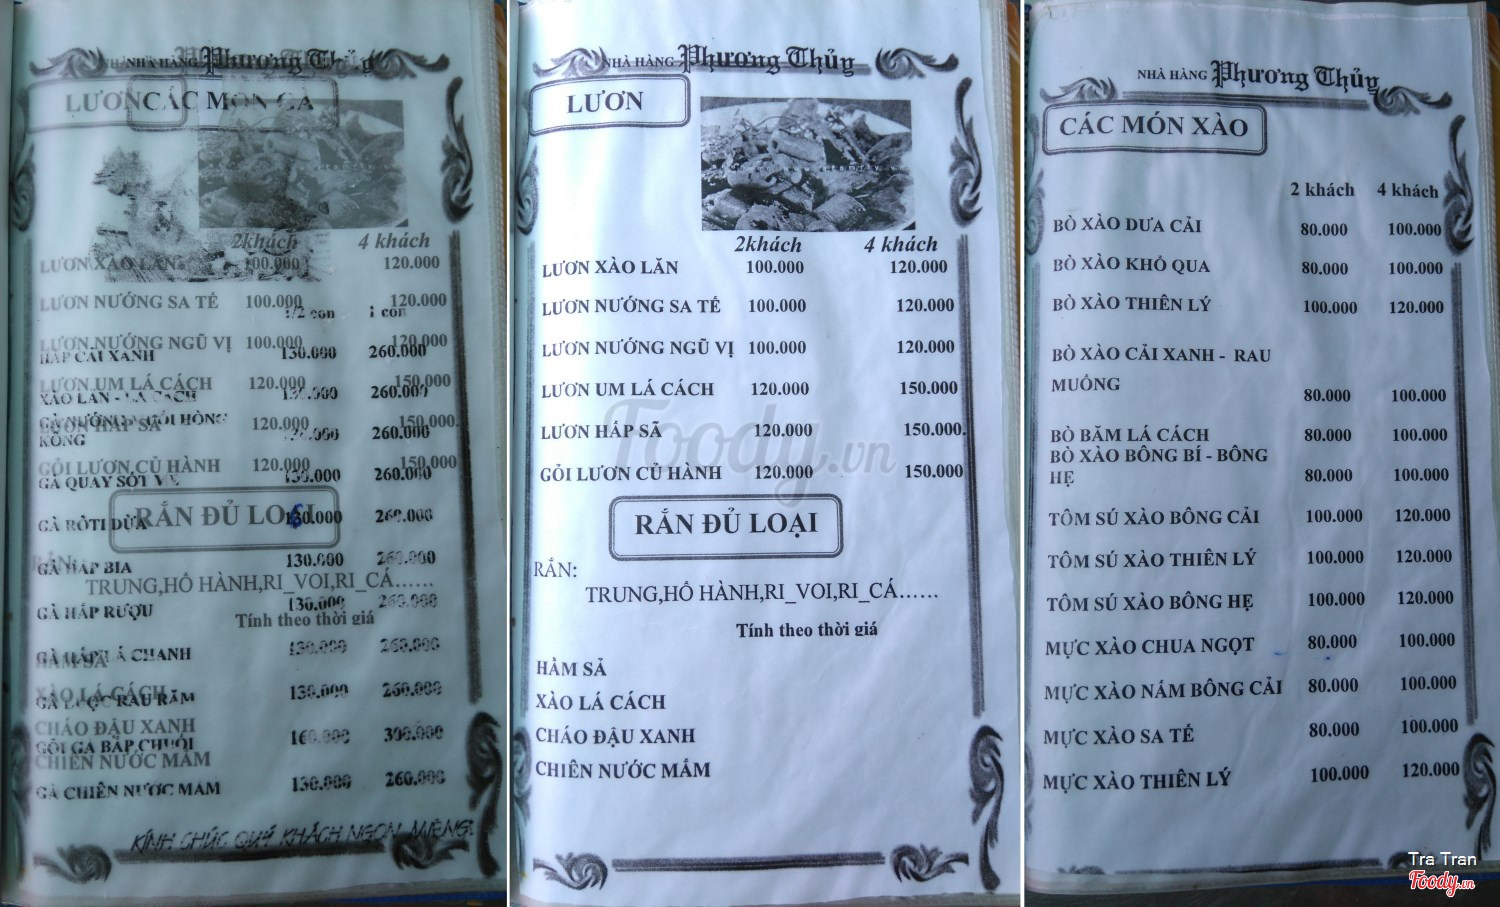 NHÀ HÀNG Phương Thủy
LƯƠN
CÁC MÓN GÀ
2khách 4 khách
LƯƠN XÀO LĂN 100.000 120.000
LƯƠN NƯỚNG SA TẾ 100.000 120.000
1/2 con 1 con
LƯƠN NƯỚNG NGŨ VỊ 100.000 120.000
HẤP CẢI XANH 130.000 260.000
LƯƠN UM LÁ CÁCH 120.000 150.000
XÀO LĂN - LÁ CÁCH 130.000 260.000
LƯƠN HẤP SẢ 120.000 150.000.
KÔNG 260.000
GỎI LƯƠN CỦ HÀNH 120.000 150.000
GÀ QUAY SỐT 130.000 260.000
RẮN ĐỦ LOẠI
GÀ RÔTI DỪA 130.000 260.000
RẮN:
GÀ HẤP BIA 130.000 260.000
TRUNG,HỔ HÀNH,RI_VOI,RI_CÁ……
GÀ HẤP RƯỢU 130.000 260.000
Tính theo thời giá
GÀ HẤP LÁ CHANH 130.000 260.000
HẦM SẢ
XÀO LÁ CÁCH
GÀ LUỘC RAU RĂM 130.000 260.000
CHÁO ĐẬU XANH
GỎI GÀ BẮP CHUỐI 160.000 300.000
CHIÊN NƯỚC MẮM
GÀ CHIÊN NƯỚC MẮM 130.000 260.000
KÍNH CHÚC QUÝ KHÁCH NGON MIỆNG!
NHÀ HÀNG Phương Thủy
LƯƠN
2khách 4 khách
LƯƠN XÀO LĂN 100.000 120.000
LƯƠN NƯỚNG SA TẾ 100.000 120.000
LƯƠN NƯỚNG NGŨ VỊ 100.000 120.000
LƯƠN UM LÁ CÁCH 120.000 150.000
LƯƠN HẤP SÃ 120.000 150.000.
GỎI LƯƠN CỦ HÀNH 120.000 150.000
RẮN ĐỦ LOẠI
RẮN:
TRUNG,HỔ HÀNH,RI_VOI,RI_CÁ……
Tính theo thời giá
HẦM SẢ
XÀO LÁ CÁCH
CHÁO ĐẬU XANH
CHIÊN NƯỚC MẮM
Foody.vn
NHÀ HÀNG Phương Thủy
CÁC MÓN XÀO
2 khách 4 khách
BÒ XÀO DƯA CẢI 80.000 100.000
BÒ XÀO KHỔ QUA 80.000 100.000
BÒ XÀO THIÊN LÝ 100.000 120.000
BÒ XÀO CẢI XANH - RAU
MUỐNG 80.000 100.000
BÒ BĂM LÁ CÁCH 80.000 100.000
BÒ XÀO BÔNG BÍ - BÔNG
HẸ 80.000 100.000
TÔM SÚ XÀO BÔNG CẢI 100.000 120.000
TÔM SÚ XÀO THIÊN LÝ 100.000 120.000
TÔM SÚ XÀO BÔNG HẸ 100.000 120.000
MỰC XÀO CHUA NGỌT 80.000 100.000
MỰC XÀO NẤM BÔNG CẢI 80.000 100.000
MỰC XÀO SA TẾ 80.000 100.000
MỰC XÀO THIÊN LÝ 100.000 120.000
Tra Tran
Foody.vn